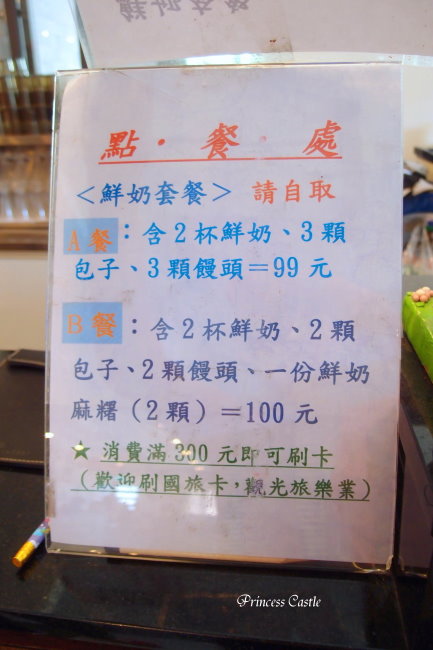 點・餐・處
＜鮮奶套餐＞ 請自取
A餐：含2杯鮮奶、3顆
包子、3顆饅頭＝99元
B餐：含2杯鮮奶、2顆
包子、2顆饅頭、一份鮮奶
麻糬（2顆）＝100元
★消費滿300元即可刷卡
（歡迎刷國旅卡，觀光旅樂業）
Princess Castle